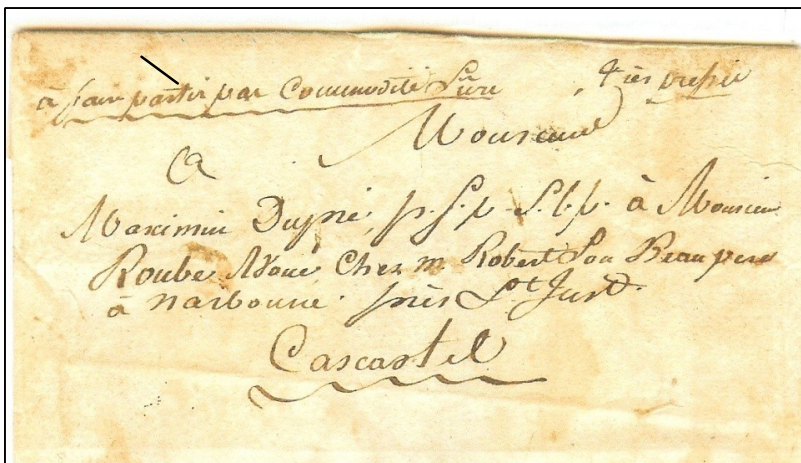 à faire partir par Commodité Sure, très pressé
Monsieur
A
Maximin Dupré, p. s. p. s. l. p. à Monsieur
Roube Avoué Chez m Robert Son Beau pere
à Narbonne. près St Just.
Cascastel